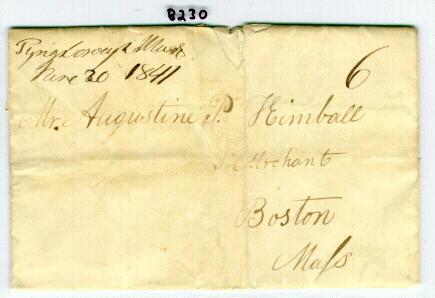 8230
Tyngsborough Mass
June 30 1841
6
Mr. Augustine P. Kimball
Merchant
Boston
Mass